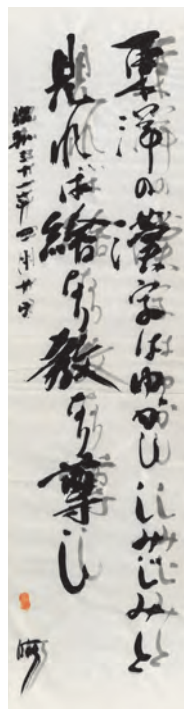 東洋の漢字はゆかしゝしみじみと
見れば繪なり教なり尊し
昭和三十一年四月廿日